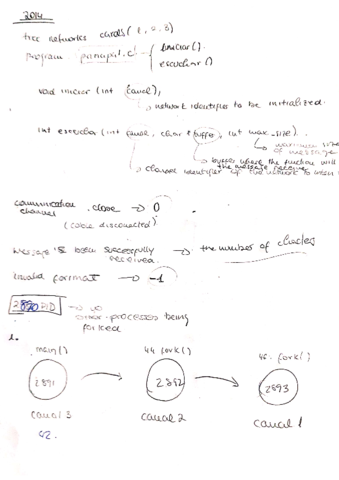 2014
tree networks canals (1, 2, 3)
Program principal.c iniciar().
escuchar()
void iniciar (int canal);
network identifier to be initialized.
int escuchar (int canal, char * buffer, int max-size).
maximum size
of message
buffer where the function will
the message receive
channel identifier of the network to listen
communication close → 0
channel
(cable disconnected)
message is been successfully → the number of
received
invalid format → -1
2890 PID → no
other processes being
forked
1.
main() 44 fork() 46. fork()
2891 2892 2893
canal 3 canal 2 canal 1
42.